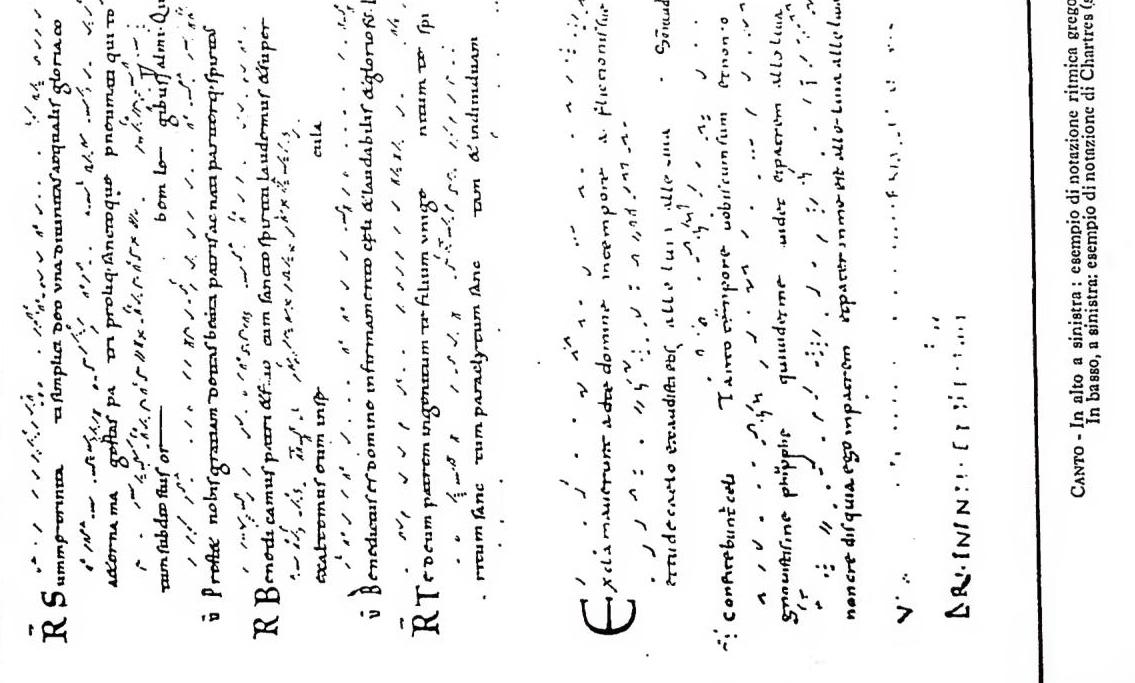 R̄ Summe trinita ti simplici deo una divinitas aequalis gloria co
aeterna ma gestas pa tri proliq; sanctoque pneumati qui to
tum subdis suis or bem le gibus almi. Qui
v̄ Prestet nobis gratiam deitas beata patris ac nati pariterq; spiritus
R Benedicamus patri & filio cum sancto spiritu laudemus & super
exaltemus eum in se cula
v̄ Benedictus es domine in firmamento celi & laudabilis & gloriosus
R̄ Te deum patrem ingenitum te filium unige nitum te spi
ritum sanc tum paraclytum sanc tam & individuam
Exclamaverunt ad te domine in tempore afflictionis sue
et tu de caelo exaudisti eos alleluia alleluia
confitebunt celi Tanto tempore vobiscum sum et non co
gnovistis me philippe qui vidit me videt et patrem alleluia
non credis quia ego in patre et pater in me est alleluia alleluia
CANTO - In alto a sinistra : esempio di notazione ritmica grego
In basso, a sinistra: esempio di notazione di Chartres (s